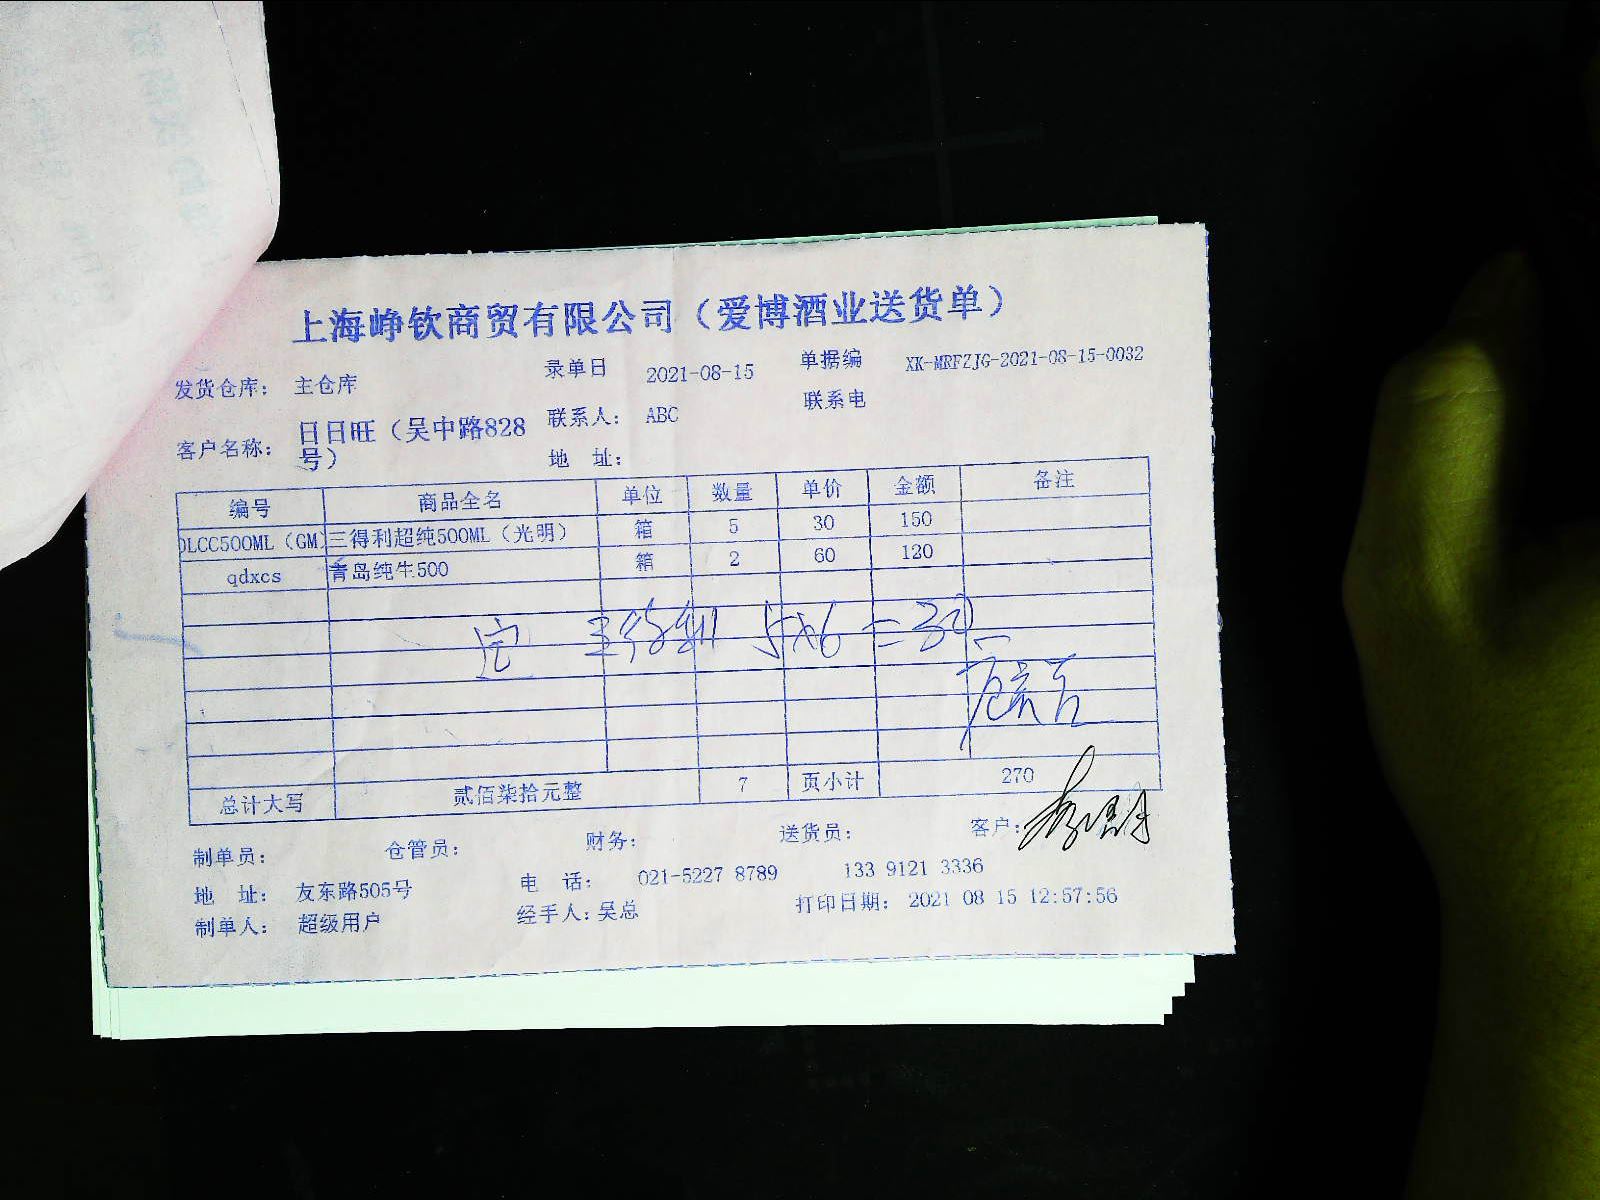 上海峥钦商贸有限公司（爱博酒业送货单）
发货仓库： 主仓库 录单日 2021-08-15 单据编 XK-MRFZJG-2021-08-15-0032
客户名称： 日日旺（吴中路828号） 联系人： ABC 联系电
地 址：
编号 商品全名 单位 数量 单价 金额 备注
OLCC500ML（GM 三得利超纯500ML（光明） 箱 5 30 150
qdxcs 青岛纯生500 箱 2 60 120
三得利 5x6=30
总计大写 贰佰柒拾元整 7 页小计 270
制单员： 仓管员： 财务： 送货员： 客户：
地 址： 友东路505号 电 话： 021-5227 8789 133 9121 3336
制单人： 超级用户 经手人：吴总 打印日期： 2021 08 15 12:57:56